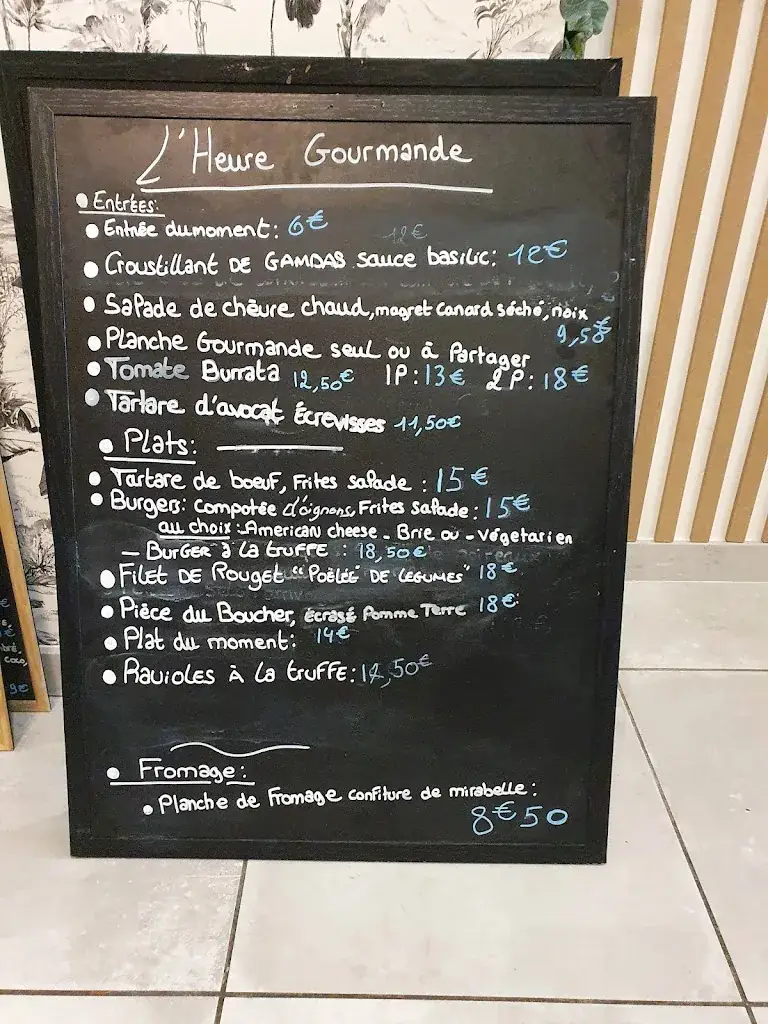 L'Heure Gourmande
• Entrées:
• Entrée du moment: 6€
12€
• Croustillant DE GAMBAS sauce basilic: 12€
• Salade de chèvre chaud, magret canard séché, noix
9,50€
• Planche Gourmande seul ou à Partager
• Tomate Burrata 12,50€ 1P: 13€ 2P: 18€
• Tartare d'avocat Écrevisses 11,50€
• Plats:
• Tartare de boeuf, Frites salade : 15€
• Burgers: compotée d'oignons, Frites Salade: 15€
au choix: American cheese - Brie ou - Végétarien
- BurGER à la truffe : 18,50€
• FILET DE Rouget "POÊLÉE DE LÉGUMES" 18€
• Pièce du Boucher, écrasé Pomme Terre 18€
• Plat du moment: 14€
• Ravioles à la truffe:
• Fromage:
• Planche de Fromage confiture de mirabelle:
8€50
9€